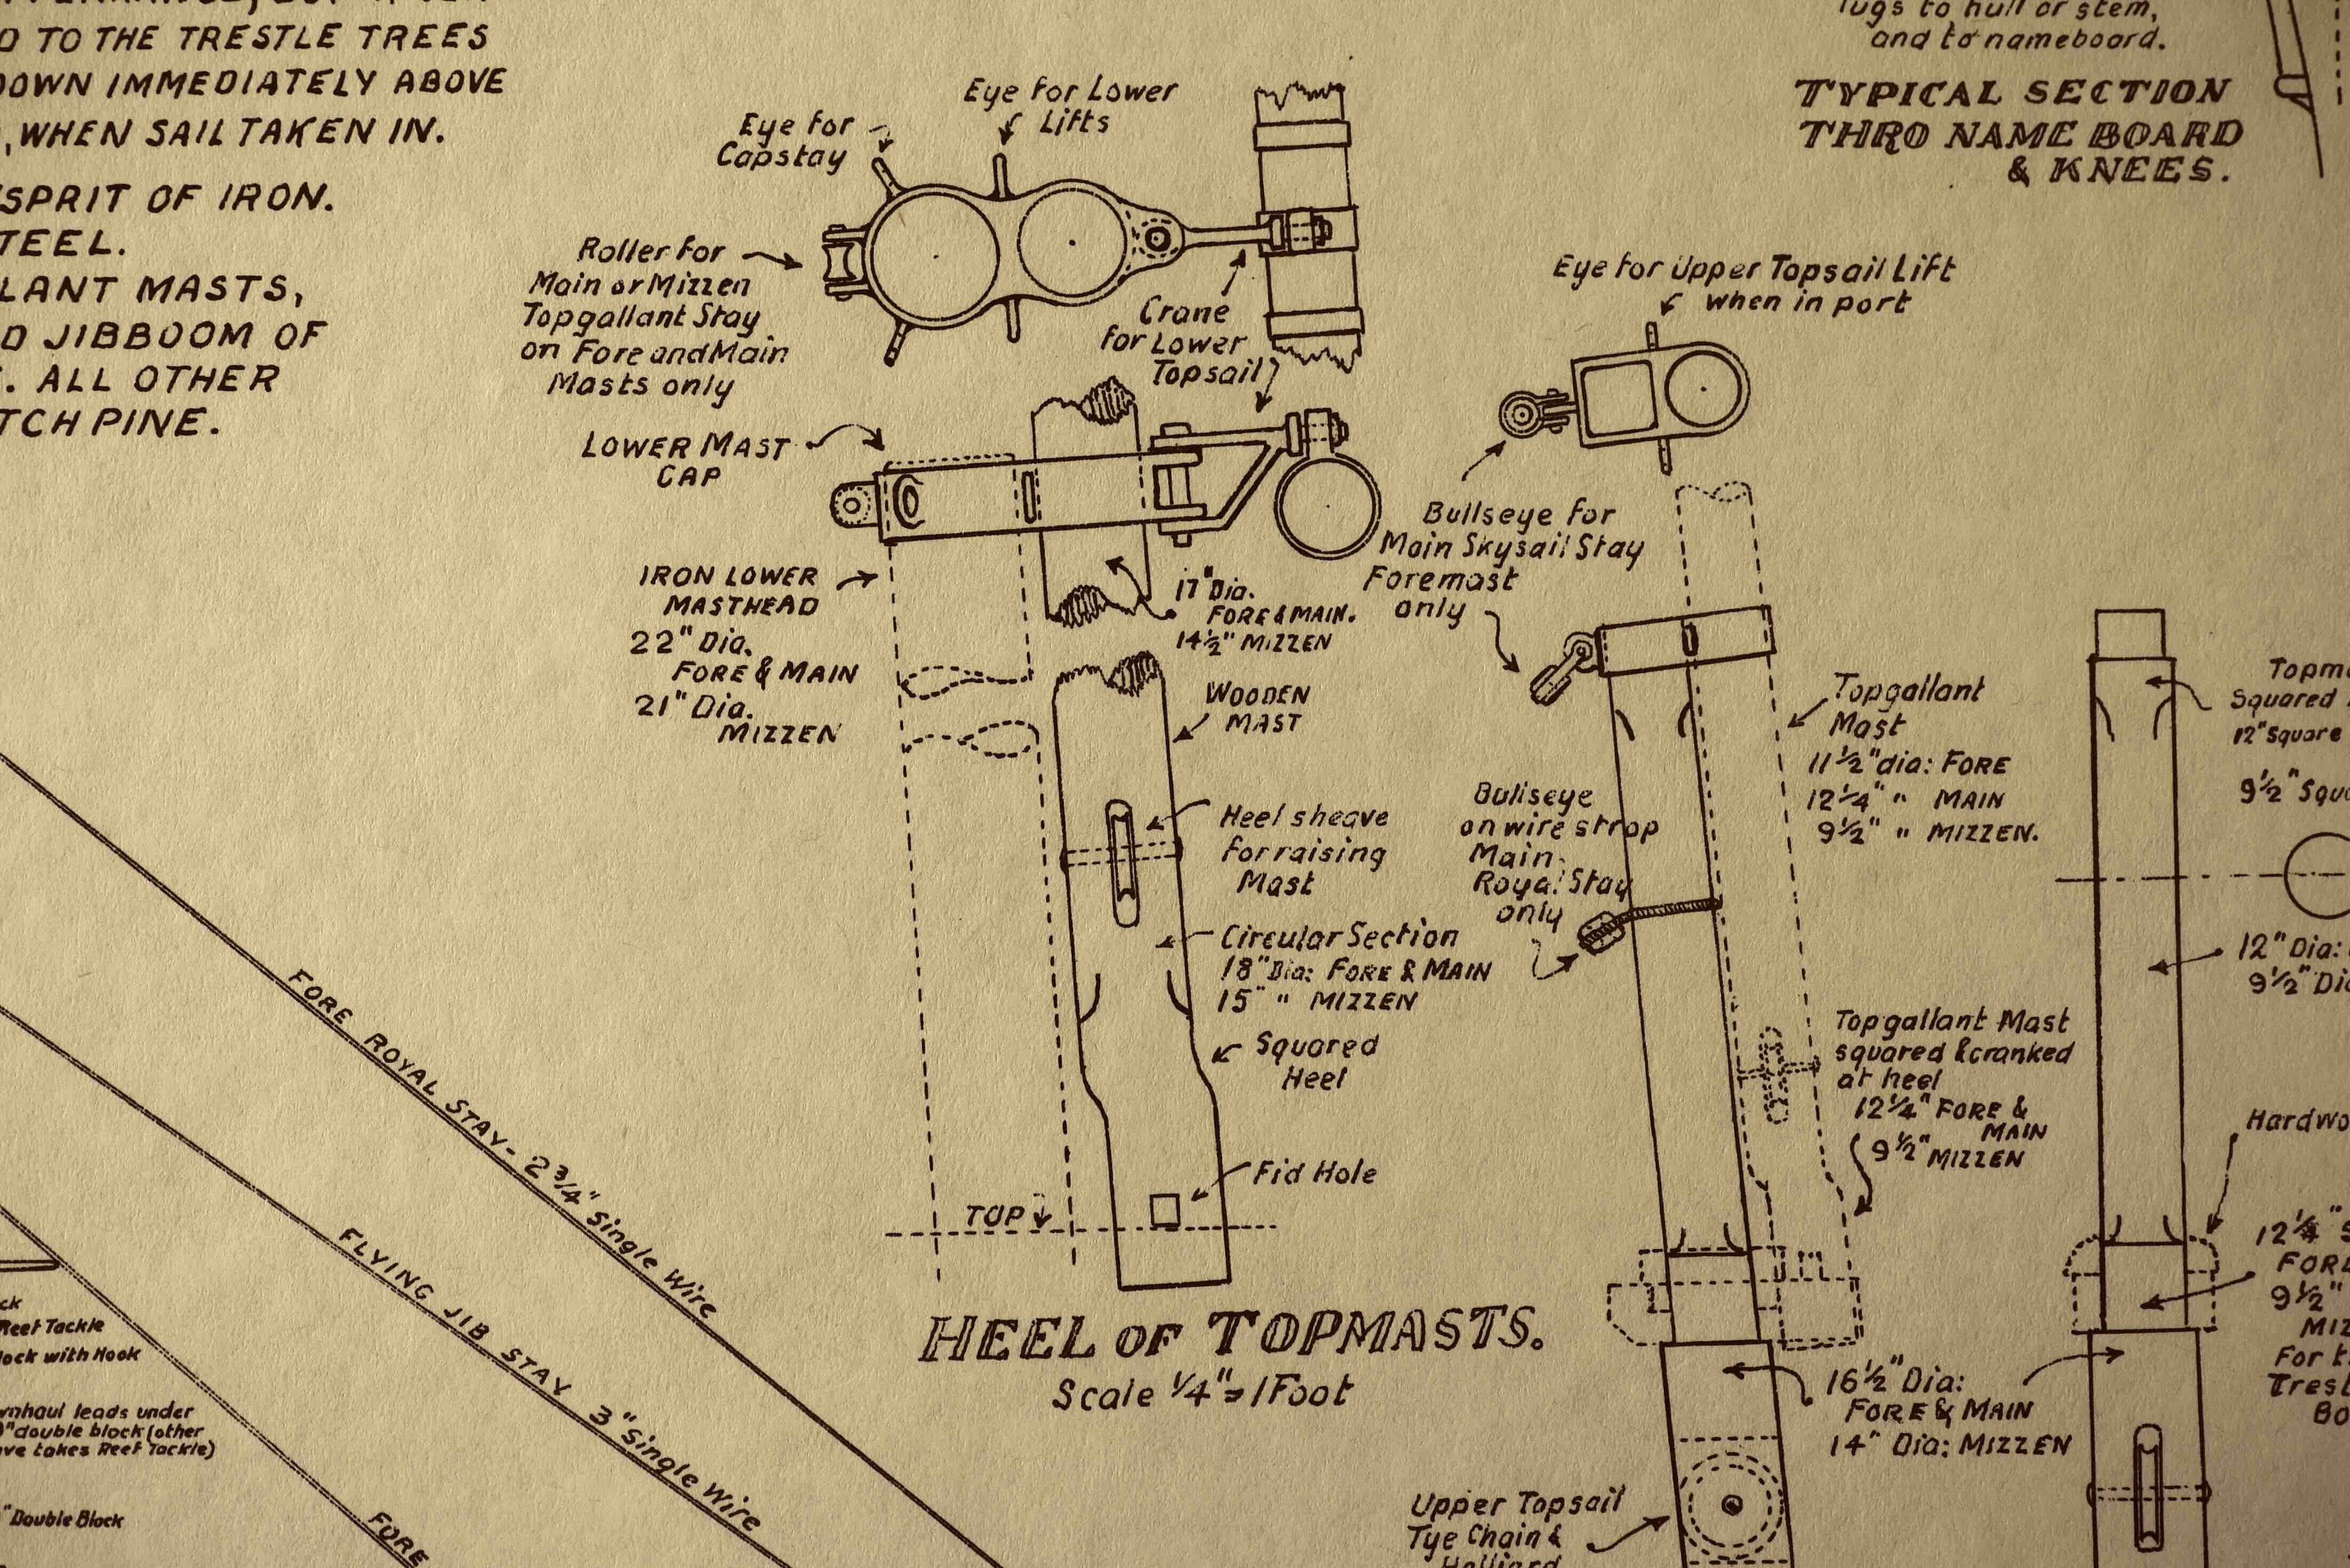 TO THE TRESTLE TREES
DOWN IMMEDIATELY ABOVE
, WHEN SAIL TAKEN IN.
SPRIT OF IRON.
TEEL.
LANT MASTS,
D JIBBOOM OF
. ALL OTHER
TCH PINE.
Eye for Lower
Lifts
Eye for
Capstay
Roller for
Main or Mizzen
Topgallant Stay
on Fore and Main
Masts only
Crane
for Lower
Topsail
LOWER MAST
CAP
IRON LOWER
MASTHEAD
22" Dia.
FORE & MAIN
21" Dia.
MIZZEN
17" Dia.
FORE & MAIN.
14½" MIZZEN
WOODEN
MAST
Heel sheave
for raising
Mast
Circular Section
18" Dia: FORE & MAIN
15" " MIZZEN
Squared
Heel
Fid Hole
TOP
HEEL OF TOPMASTS.
Scale ¼" = 1 Foot
lugs to hull or stem,
and to nameboard.
TYPICAL SECTION
THRO NAME BOARD
& KNEES.
Eye for Upper Topsail Lift
when in port
Bullseye for
Main Skysail Stay
Foremast
only
Topgallant
Mast
11½" dia: FORE
12¼" " MAIN
9½" " MIZZEN.
Bullseye
on wire strop
Main
Royal Stay
only
Topgallant Mast
squared & cranked
at heel
12¼" FORE &
MAIN
9½" MIZZEN
16½" Dia:
FORE & MAIN
14" Dia: MIZZEN
Upper Topsail
Tye Chain &
Halliard
Topm
Squared
12" Square
9½" Squ
12" Dia:
9½" Di
Hardwo
12¼" S
FOR
9½"
MIZ
For t
Trest
Bo
FORE ROYAL STAY - 2¾" Single Wire
FLYING JIB STAY 3" Single Wire
FORE
ck
Reef Tackle
lock with Hook
wnhaul leads under
"double block (other
ve takes Reef Tackle)
" Double Block